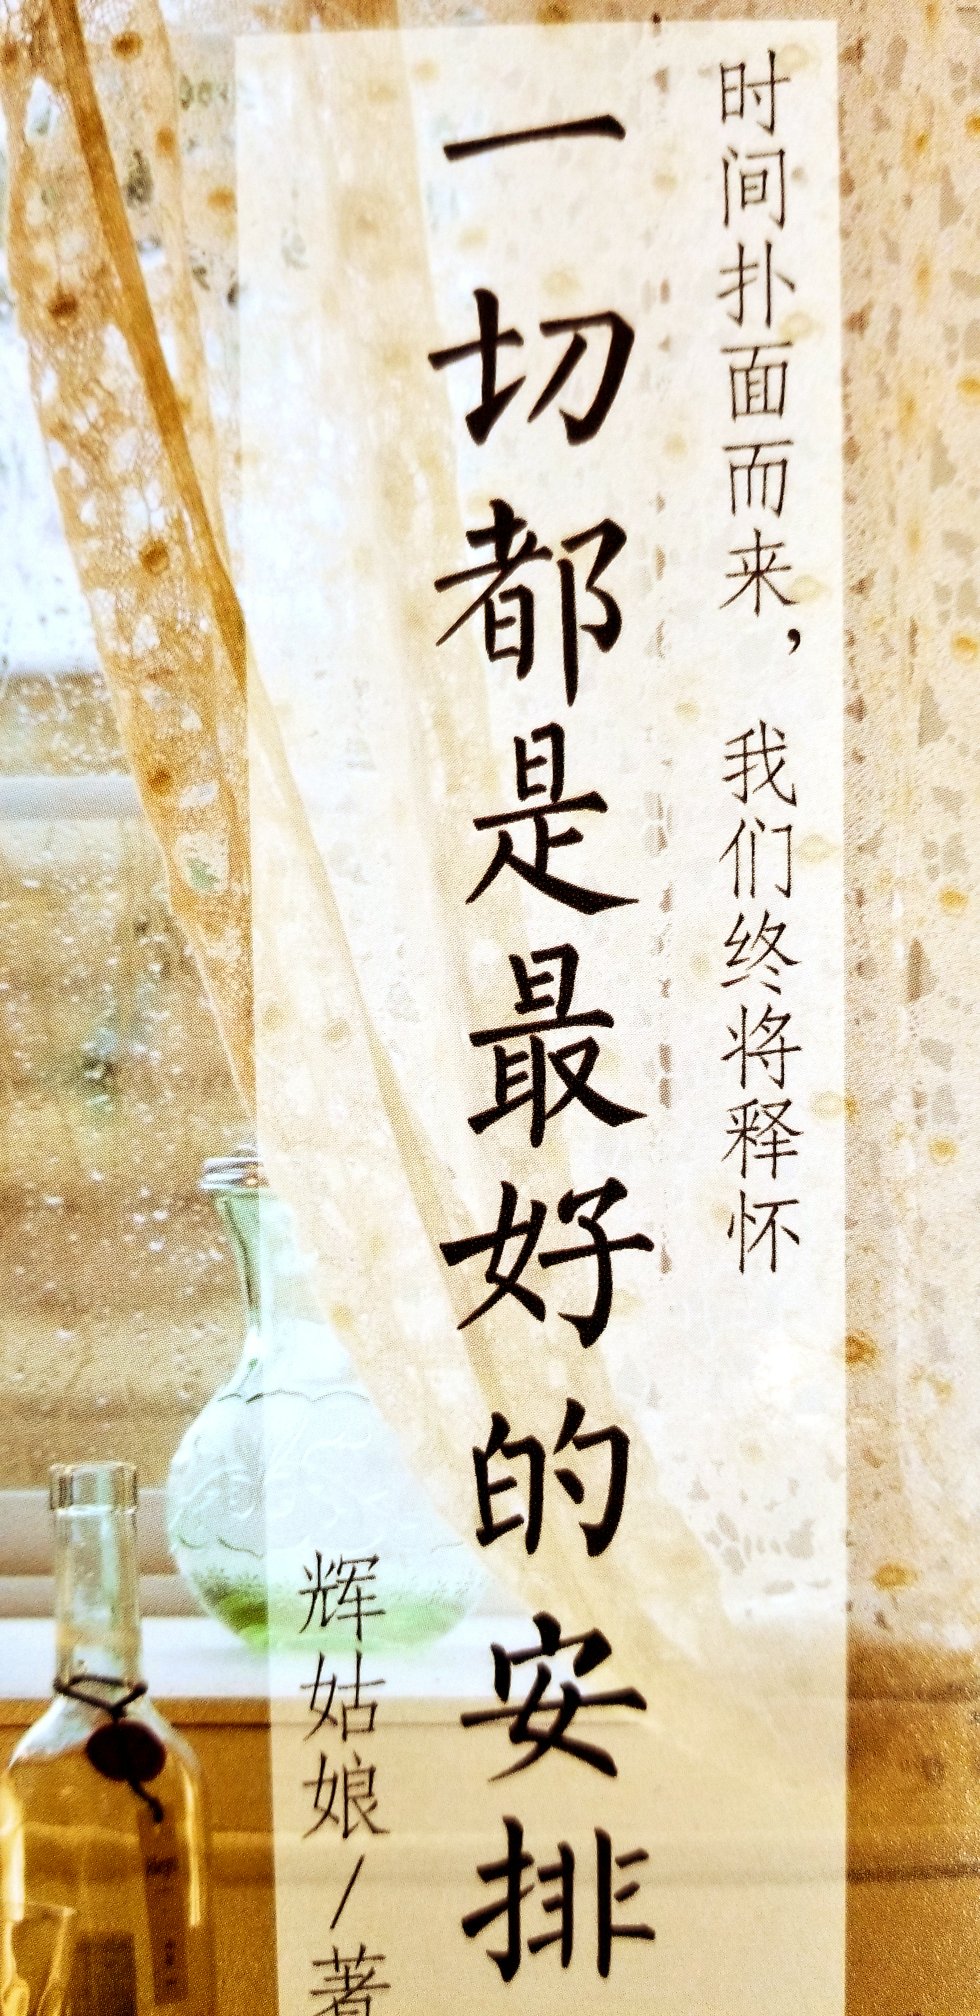 时间扑面而来，我们终将释怀
一切都是最好的安排
辉姑娘/著